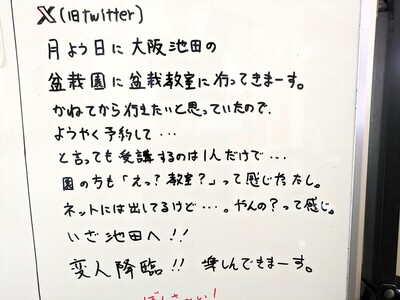 X(旧twitter)
月よう日に大阪池田の
盆栽園に盆栽教室に行ってきまーす。
かねてから行きたいと思っていたので、
ようやく予約して・・・
と言っても受講するのは1人だけで・・・
園の方も「えっ?教室?」って感じだたし。
ネットには出してるけど・・・。やんの?って感じ。
いざ池田へ!!
変人降臨!! 楽しんできまーす。